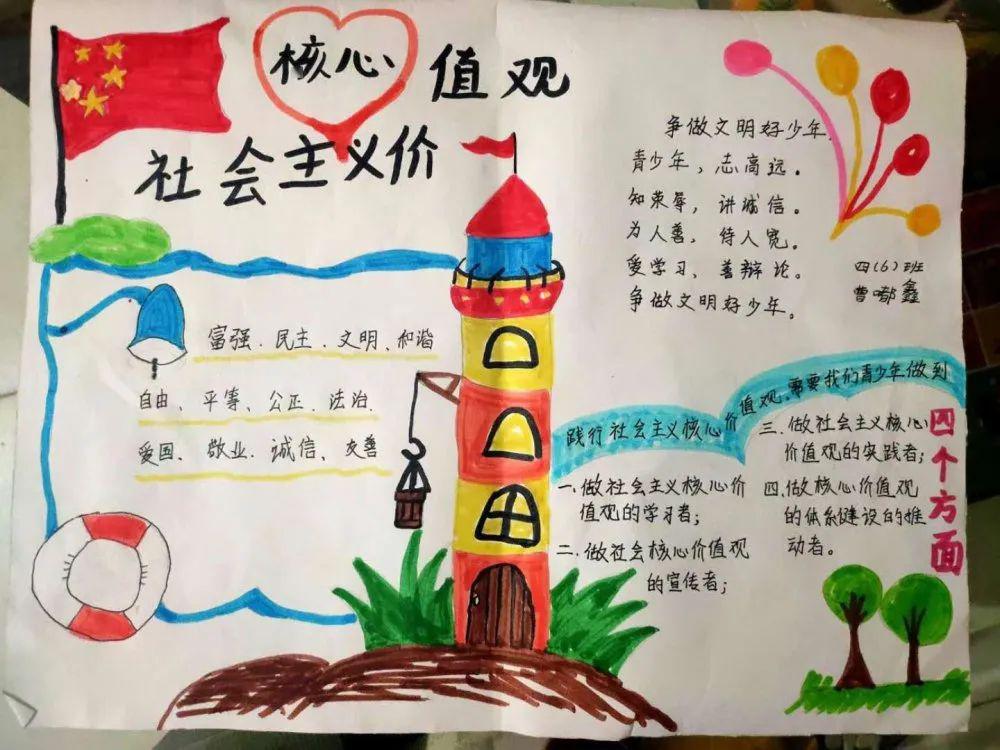 核心价值观
社会主义价
富强、民主、文明、和谐
自由、平等、公正、法治、
爱国、敬业、诚信、友善
争做文明好少年
青少年，志高远。
知荣辱，讲诚信。
为人善，待人宽。
爱学习，善辩论。
争做文明好少年。
四（6）班
曹 鑫
践行社会主义核心价值观，需要我们青少年做到
四个方面
一、做社会主义核心价
值观的学习者；
二、做社会核心价值观
的宣传者；
三、做社会主义核心
价值观的实践者；
四、做核心价值观
的体系建设的推
动者。